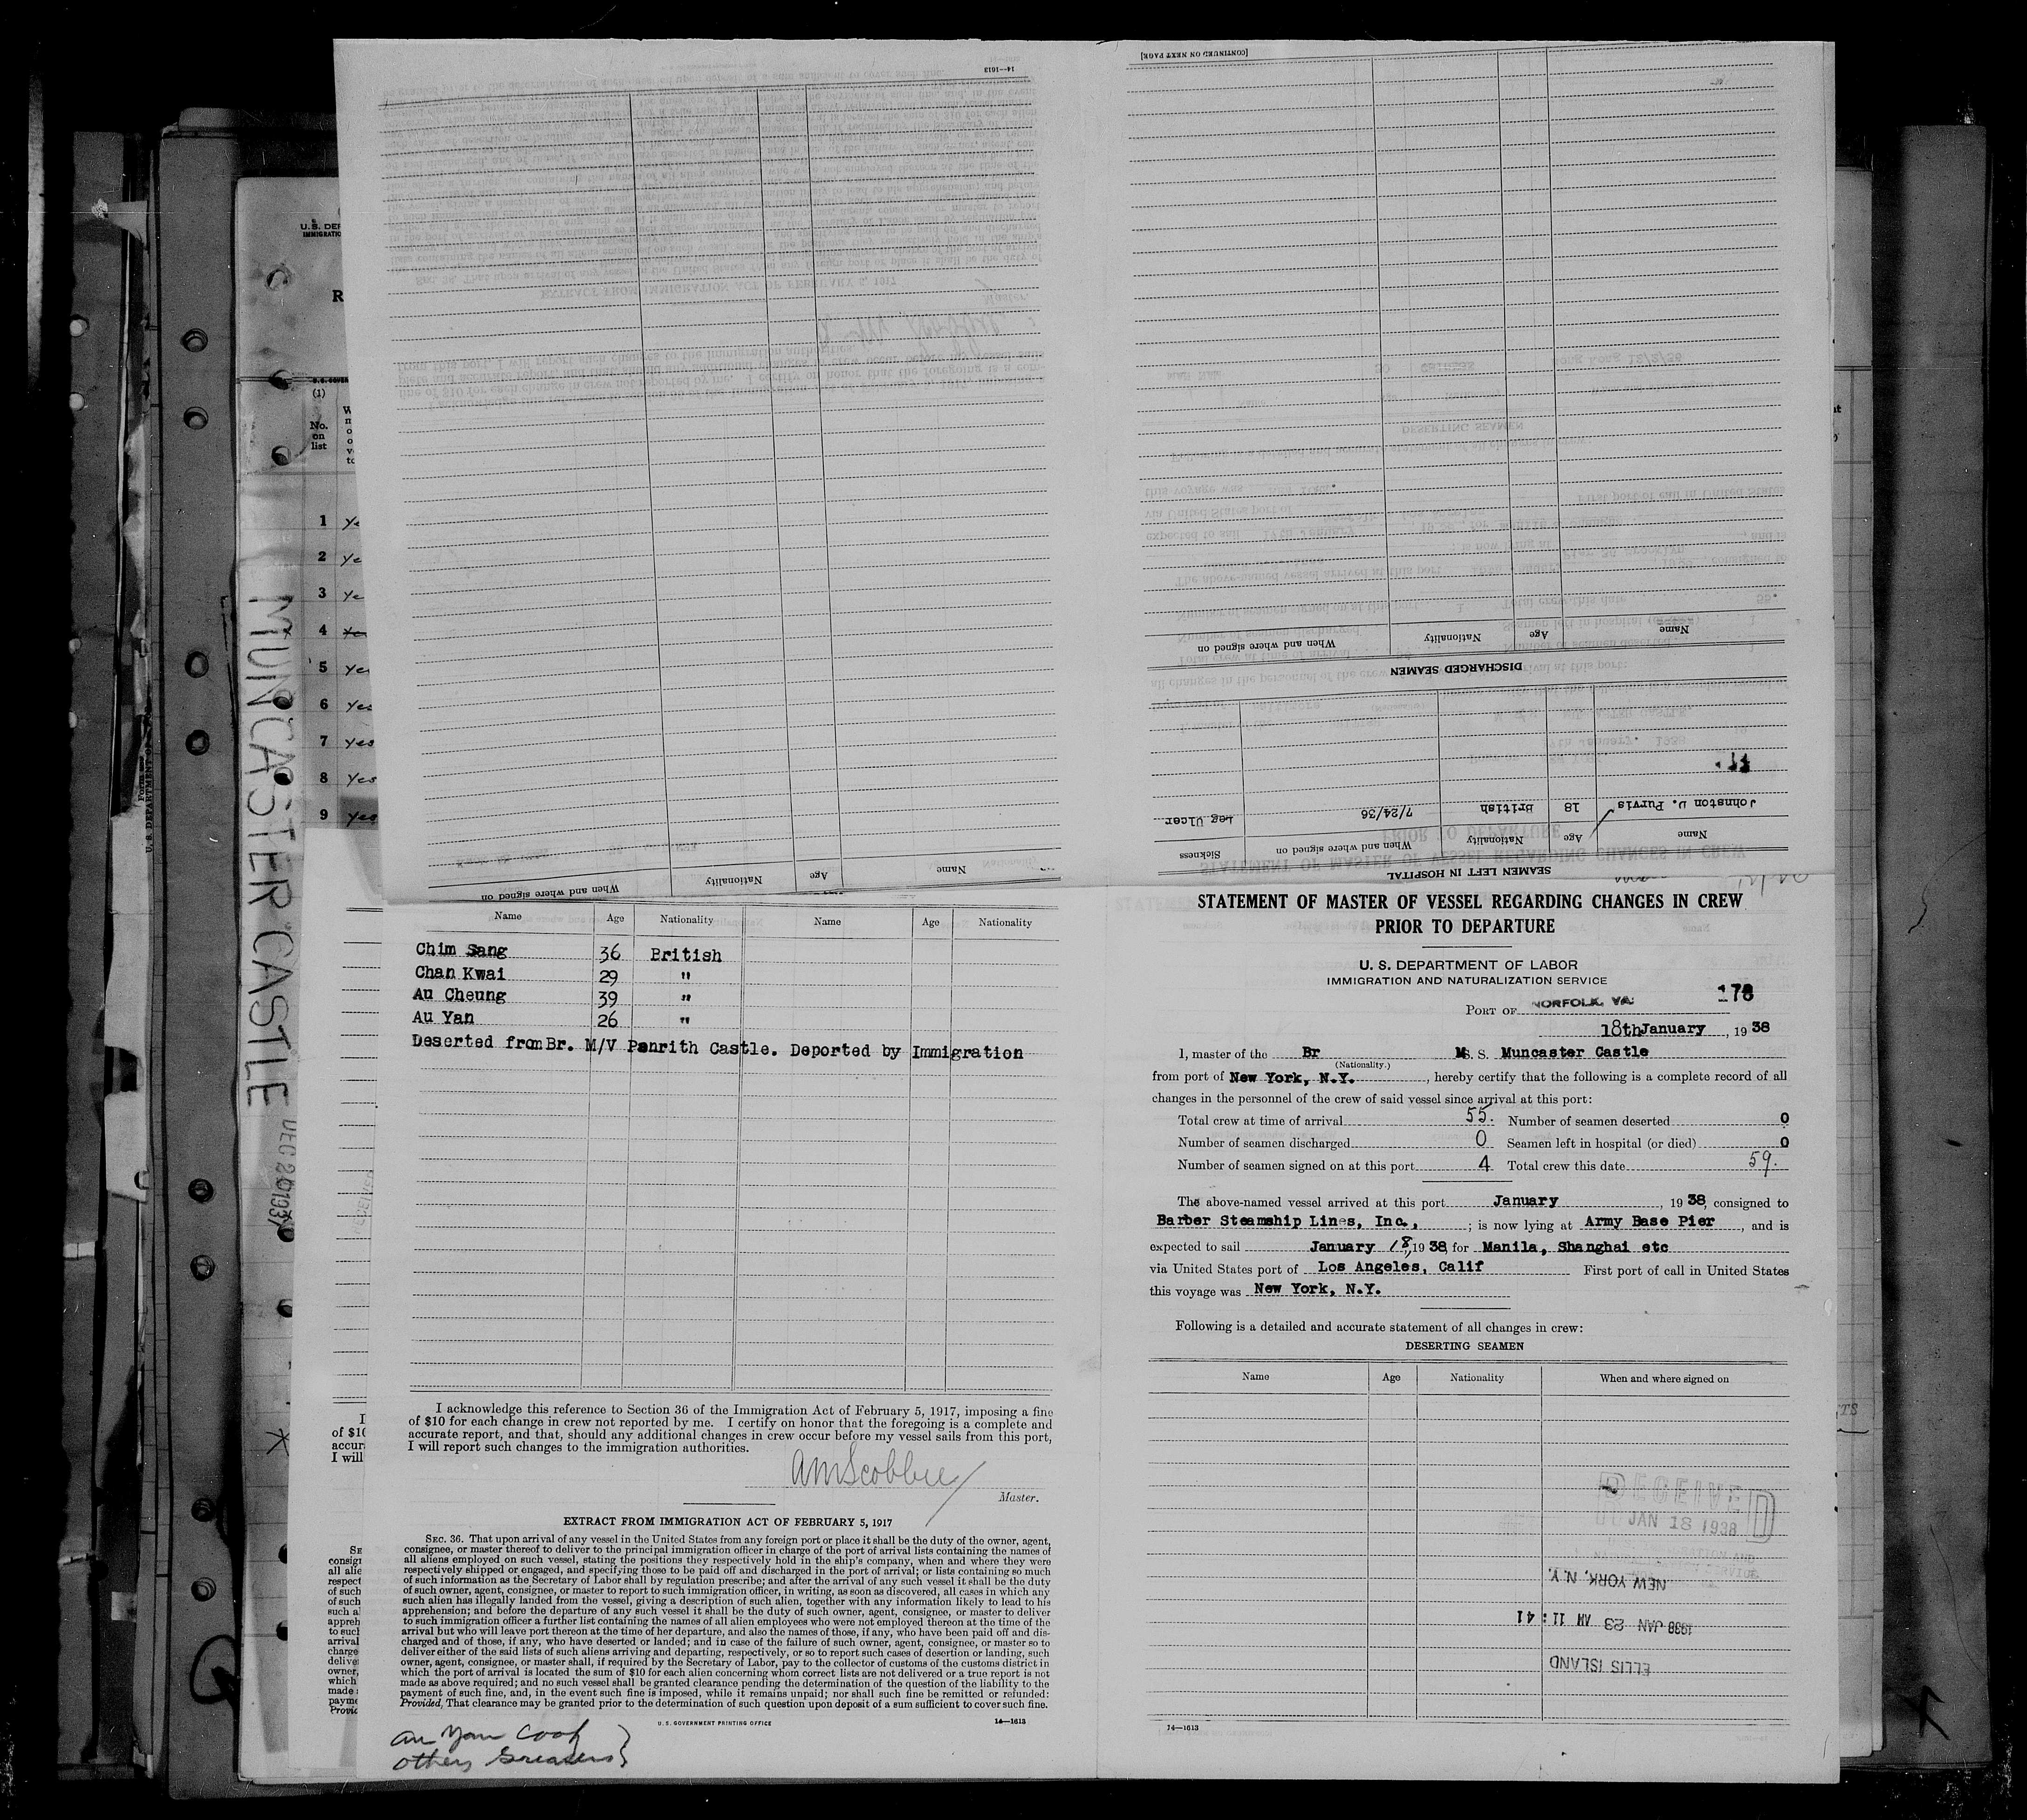 14—1613
[CONTINUED ON NEXT PAGE]
U.S. DEP
IMMIGRATIO
R
(1)
No.
on
list
1 Ye
2 Ye
3 Ye
4 Yes
5 Yes
6 Yes
7 Yes
8 Yes
9 Yes
MUNCASTER CASTLE
DEC 20 1937
Name Age Nationality When and where signed on
DISCHARGED SEAMEN
Name Age Nationality When and where signed on
11
Johnston D. Purvis 18 British 7/24/36 Leg Ulcer
Name Age Nationality When and where signed on Sickness
SEAMEN LEFT IN HOSPITAL
Name Age Nationality Name Age Nationality
Chim Sang 36 British
Chan Kwai 29 "
Au Cheung 39 "
Au Yan 26 "
Deserted from Br. M/V Penrith Castle. Deported by Immigration
I acknowledge this reference to Section 36 of the Immigration Act of February 5, 1917, imposing a fine
of $10 for each change in crew not reported by me. I certify on honor that the foregoing is a complete and
accurate report, and that, should any additional changes in crew occur before my vessel sails from this port,
I will report such changes to the immigration authorities.
AMScobbie
Master.
EXTRACT FROM IMMIGRATION ACT OF FEBRUARY 5, 1917
SEC. 36. That upon arrival of any vessel in the United States from any foreign port or place it shall be the duty of the owner, agent,
consignee, or master thereof to deliver to the principal immigration officer in charge of the port of arrival lists containing the names of
all aliens employed on such vessel, stating the positions they respectively hold in the ship's company, when and where they were
respectively shipped or engaged, and specifying those to be paid off and discharged in the port of arrival; or lists containing so much
of such information as the Secretary of Labor shall by regulation prescribe; and after the arrival of any such vessel it shall be the duty
of such owner, agent, consignee, or master to report to such immigration officer, in writing, as soon as discovered, all cases in which any
such alien has illegally landed from the vessel, giving a description of such alien, together with any information likely to lead to his
apprehension; and before the departure of any such vessel it shall be the duty of such owner, agent, consignee, or master to deliver
to such immigration officer a further list containing the names of all alien employees who were not employed thereon at the time of the
arrival but who will leave port thereon at the time of her departure, and also the names of those, if any, who have been paid off and dis-
charged and of those, if any, who have deserted or landed; and in case of the failure of such owner, agent, consignee, or master so to
deliver either of the said lists of such aliens arriving and departing, respectively, or so to report such cases of desertion or landing, such
owner, agent, consignee, or master shall, if required by the Secretary of Labor, pay to the collector of customs of the customs district in
which the port of arrival is located the sum of $10 for each alien concerning whom correct lists are not delivered or a true report is not
made as above required; and no such vessel shall be granted clearance pending the determination of the question of the liability to the
payment of such fine, and, in the event such fine is imposed, while it remains unpaid; nor shall such fine be remitted or refunded:
Provided, That clearance may be granted prior to the determination of such question upon deposit of a sum sufficient to cover such fine.
U. S. GOVERNMENT PRINTING OFFICE 14—1613
Au Yan Cook }
others Greasers }
STATEMENT OF MASTER OF VESSEL REGARDING CHANGES IN CREW
PRIOR TO DEPARTURE
U. S. DEPARTMENT OF LABOR
IMMIGRATION AND NATURALIZATION SERVICE
PORT OF NORFOLK, VA. 178
18th January, 1938
I, master of the Br MS. S. Muncaster Castle
(Nationality.)
from port of New York, N.Y., hereby certify that the following is a complete record of all
changes in the personnel of the crew of said vessel since arrival at this port:
Total crew at time of arrival 55. Number of seamen deserted 0
Number of seamen discharged 0 Seamen left in hospital (or died) 0
Number of seamen signed on at this port 4 Total crew this date 59.
The above-named vessel arrived at this port January, 1938, consigned to
Barber Steamship Lines, Inc., ; is now lying at Army Base Pier, and is
expected to sail January 18, 1938, for Manila, Shanghai etc
via United States port of Los Angeles, Calif First port of call in United States
this voyage was New York, N.Y.
Following is a detailed and accurate statement of all changes in crew:
DESERTING SEAMEN
Name Age Nationality When and where signed on
RECEIVED
JAN 18 1938
NEW YORK, N.Y.
1938 JAN 23 AM 11:41
ELLIS ISLAND
14—1613